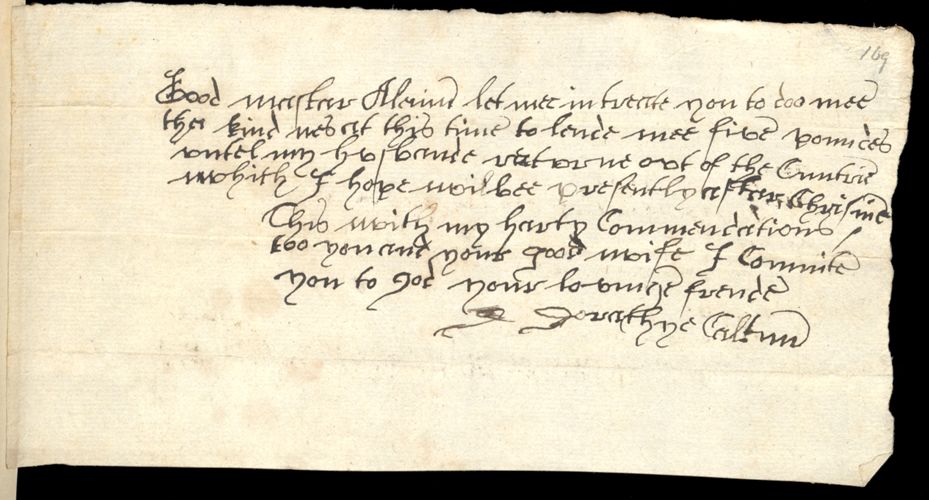 169
Good mastar Aleinn let mee in treate you to doo mee
the kind nes at this time to lende mee five poundes
vntel my hvsbande retvrne ovt of the Cuntrie
whith I hope wil bee presently after Chrismē
This with my harty Commendations
too you and your good wife I Committe
you to god your lovinge frende
Dorathye Calkinn